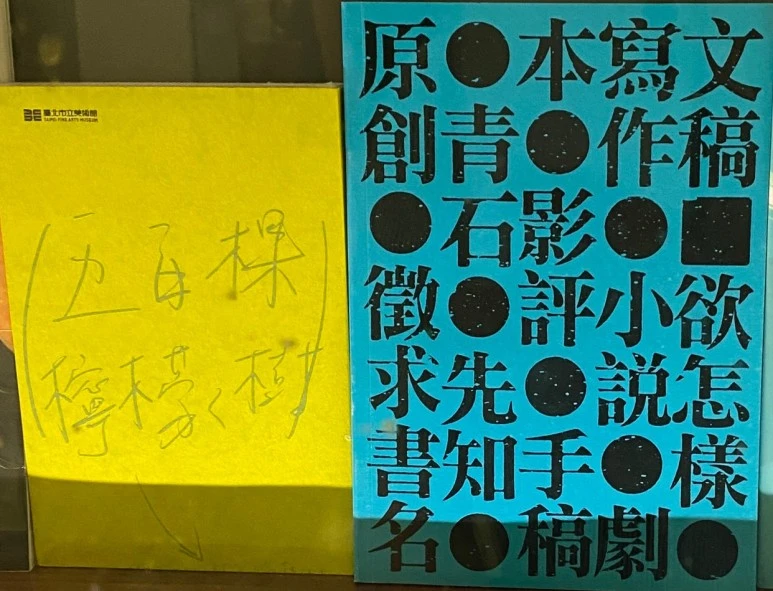 臺北市立美術館
TAIPEI FINE ARTS MUSEUM
(五百棵
檸檬樹)
文稿■欲怎樣●
寫作●小説●劇
本●影評●手稿
●青石●先知●
原創●徵求書名